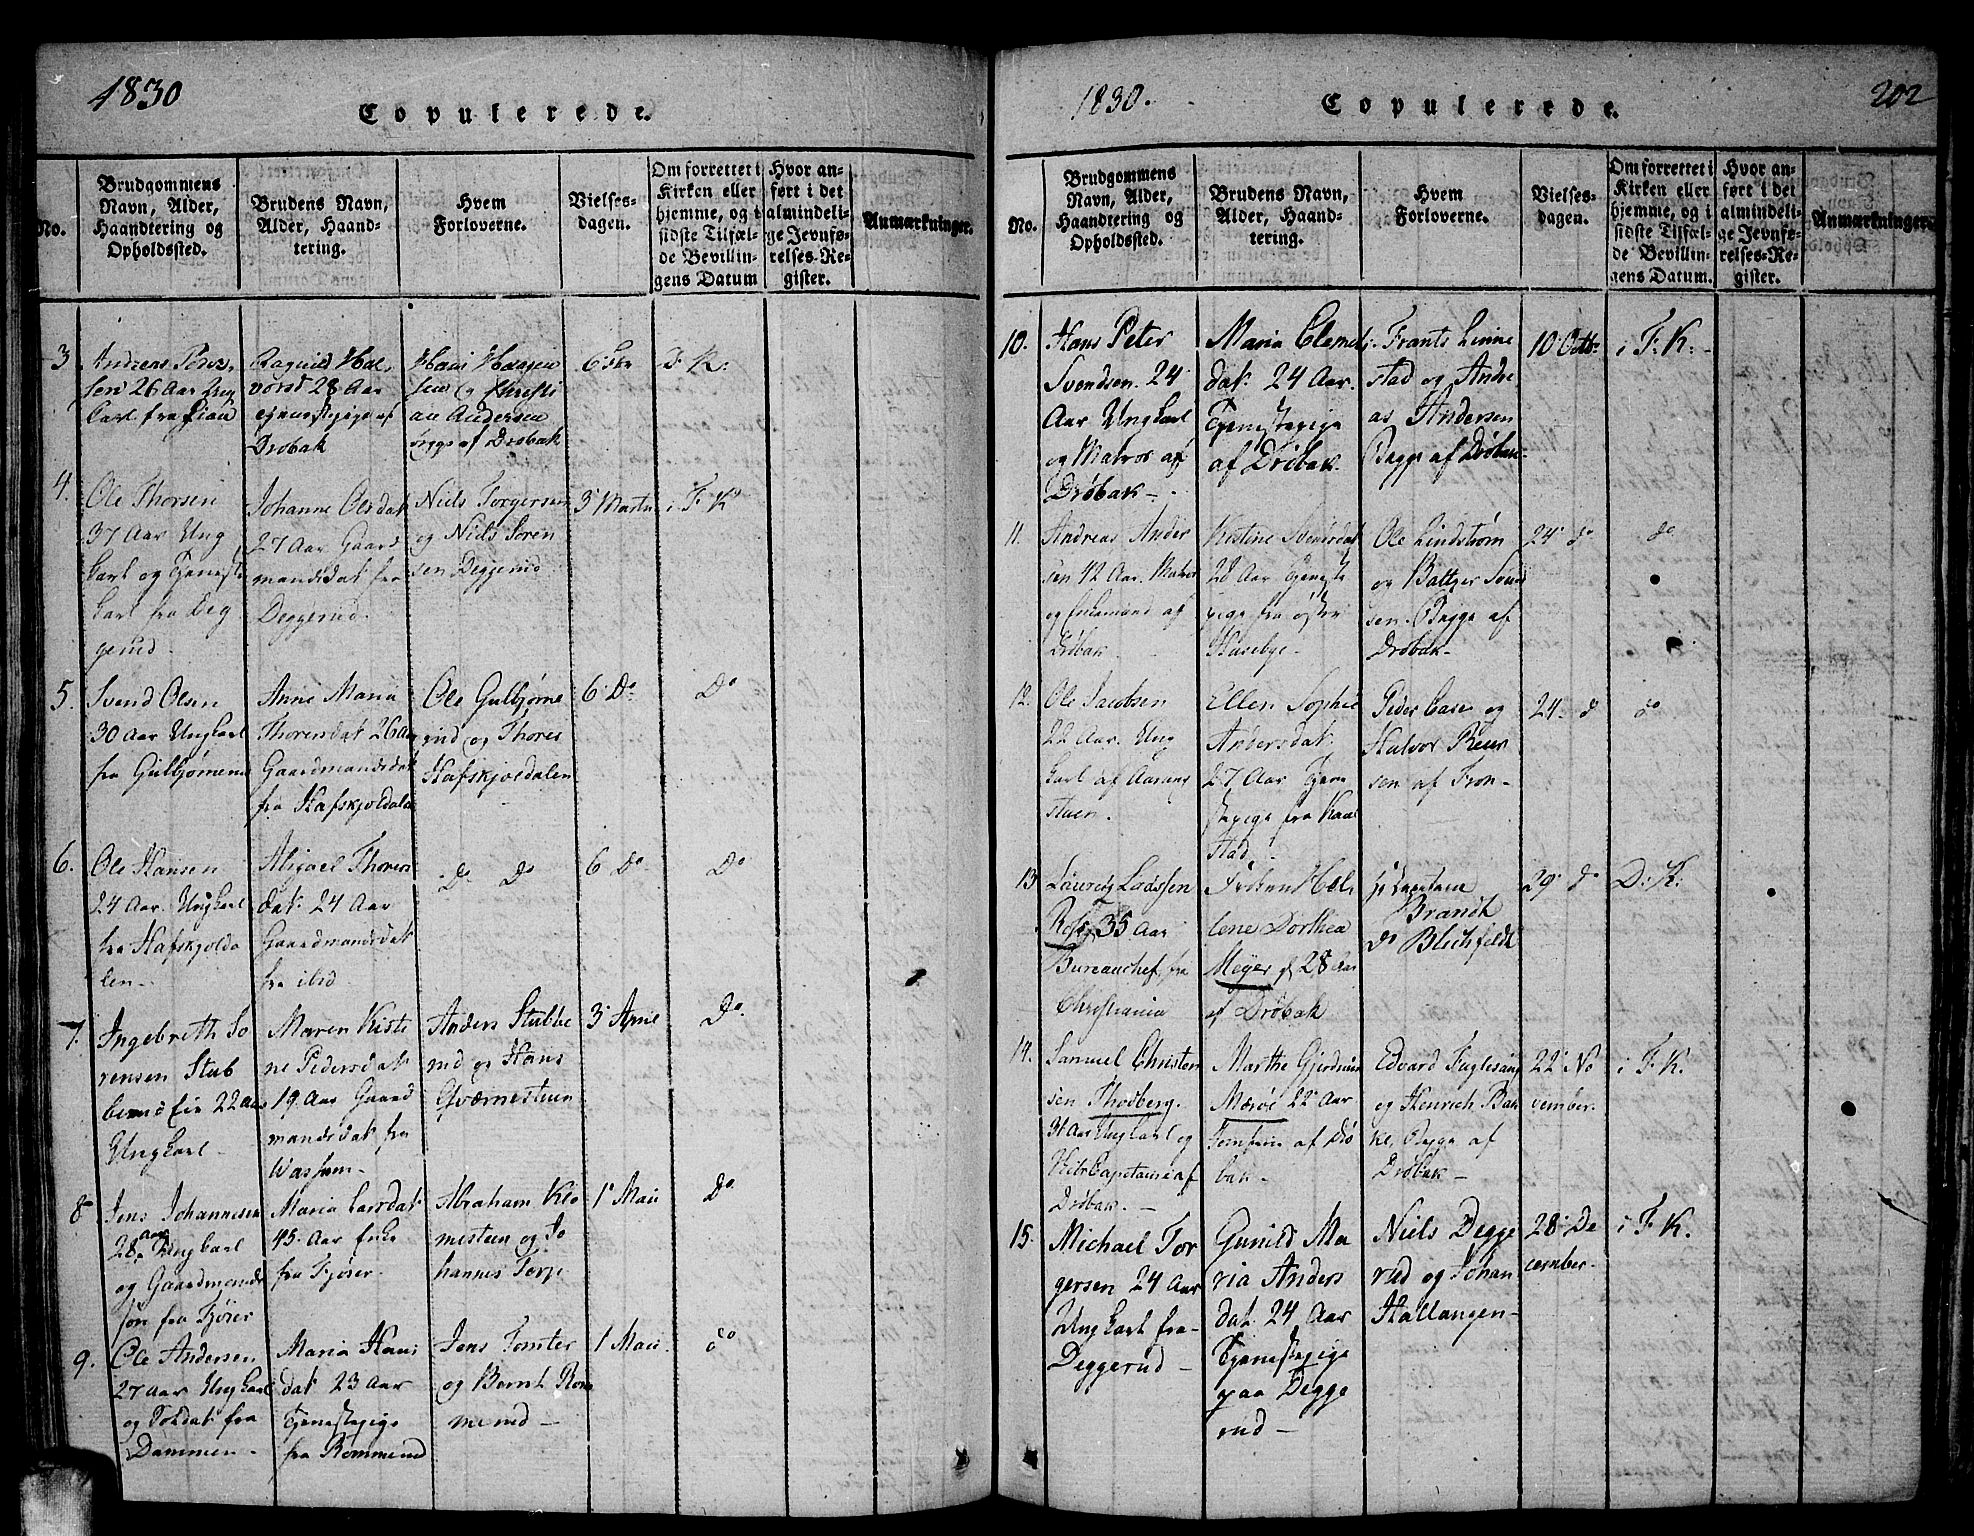 1830
Copulerede.
No.
Brudgommens
Navn, Alder,
Haandtering og
Opholdssted.
Brudens Navn,
Alder, Haand-
tering.
Hvem
Forloverne.
Vielses-
dagen.
Om forrettet i
Kirken eller
hjemme, og i
sidste Tilfæl-
de Bevillin-
gens Datum
Hvor an-
ført i det
almindeli-
ge Jevnfø-
relses-Re-
gister.
Anmærkninger.
3
Andreas
sen 26 Aar Ung
karl fra
Ragnild Hal
vorsd 28 Aar
Tjenestepige af
Drøbak
Hans Haagen
sen og Christi
an Andersen
begge af Drøbak
6 Febr
F. K.
4.
Ole Thorsen
37 Aar Ung
karl og Tjeneste
karl fra Deg
gerud.
Johanne Olsdat
27 Aar Gaard
mandsdat fra
Deggerud.
Niels Torgersen
og Niels Søren
sen Deggerud
3 Marts
i F. K
5.
Svend Olsen
30 Aar Ungkarl
fra Gulbjørnerud
Anne Maria
Thoresdat 26 Aar
Gaardmandsdat
fra Hafskjoldalen
Ole Gulbjørne
rud og Thores
Hafskjoldalen
6 Do
Do
6.
Ole Hansen
24 Aar. Ungkarl
fra Hafskjolda
len.
Abigael Thores
dat. 24 Aar
Gaardmandsdat
fra ibid
Do Do
6 Do
Do
7.
Ingebreth So
rensen Stub
berud 22 Aar
Ungkarl
Maren Kisti
ne Pedersdat
19. Aar Gaard
mandsdat fra
Anders Stubbe
rud og Hans
Qværnesteen
3 April
Do
8
Jens Johannesen
28 Aar Ungkarl
og Gaardmands
søn fra Fjøser
Maria Larsdat
45. Aar Enke
fra Fjøser
Abraham Klo
mesteen og Jo
hannes Torp
1 Maii
Do
9.
Ole Andersen
27 Aar Ungkarl
og Soldat fra
Dammen
Maria Hans
dat 23 Aar
Tjenestepige
fra Rommerud
Jens Tomter
og Bernt Rom
merud
1 Maii
do
1830.
Copulerede.
202
No.
Brudgommens
Navn, Alder,
Haandtering og
Opholdssted.
Brudens Navn,
Alder, Haand-
tering.
Hvem
Forloverne.
Vielses-
dagen.
Om forrettet i
Kirken eller
hjemme, og i
sidste Tilfæl-
de Bevillin-
gens Datum.
Hvor an-
ført i det
almindeli-
ge Jevnfø-
relses-Re-
gister.
Anmærkninger.
10.
Hans Peter
Svendsen. 24
Aar Ungkarl
og Matros af
Drøbak
Maria Clemet
dat. 24 Aar.
Tjenestepige
af Drøbak.
Frants Linne
stad og Andre
as Andersen
Begge af Drøbak
10 Octbr
i F. K.
11.
Andreas Ander
sen 42 Aar. Matros
og Enkemand af
Drøbak
Kistine Svensdat
28 Aar Tjeneste
pige fra øster
Husebye
Ole Lindstrøm
og Bøttger Svend
sen. Begge af
Drøbak
24 do
do
12.
Ole Jacobsen
22 Aar. Ung
karl af Aarung
stuen.
Ellen Sophie
Andersdat.
27 Aar Tjene
stepige fra Kaal
stad.
Peder Case og
Halvor Reier
sen af Fron
24. do
do
13
Lauritz
35 Aar
Bureauchef, fra
Christiania
Frøken Hel
lene Dorthea
Meyer 28 Aar
af Drøbak
Brandt
do Blichfeldt
29 do
D. K.
14.
Samuel Christen
sen Thodberg.
31 Aar Ungkarl og
Skibscaptaine af
Drøbak.
Marthe Gjerdrine
Marøe 22 Aar
Jomfrue af Drø
bak
Edvard Fuglesang
og Henrich Bak
ke, Begge af
Drøbak
22 No
vember.
i F. K.
15.
Michael Tor
gersen 24 Aar
Ungkarl fra
Deggerud
Gunild Ma
ria Anders
dat. 24 Aar
Tjenestepige
paa Degge
rud
Niels Degge
rud og Johan
Hallangen
28 De
cember.
i F. K.